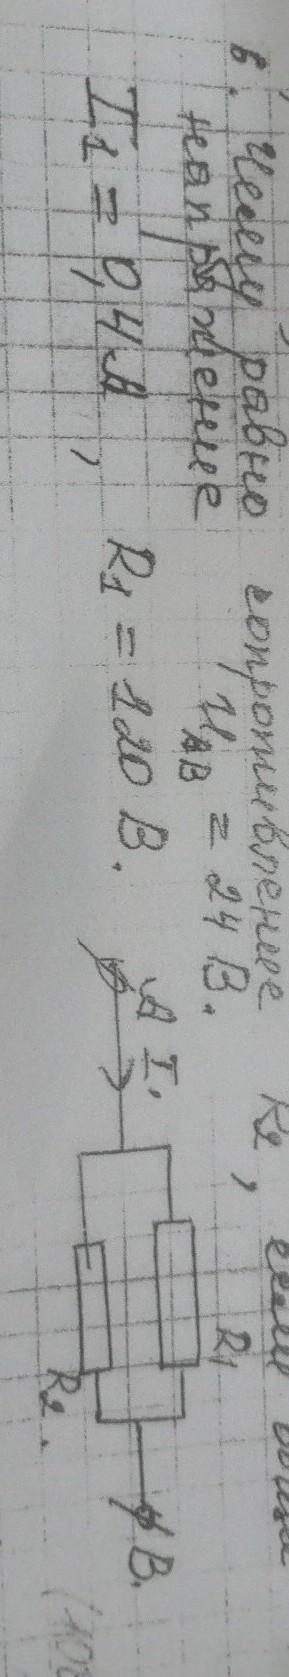 6. Чему равно сопротивление R₂, если
напряжение U_AB = 24 В.
I₁ = 0,4 А, R₁ = 120 В.
A I.
R₁
R₂.
B.